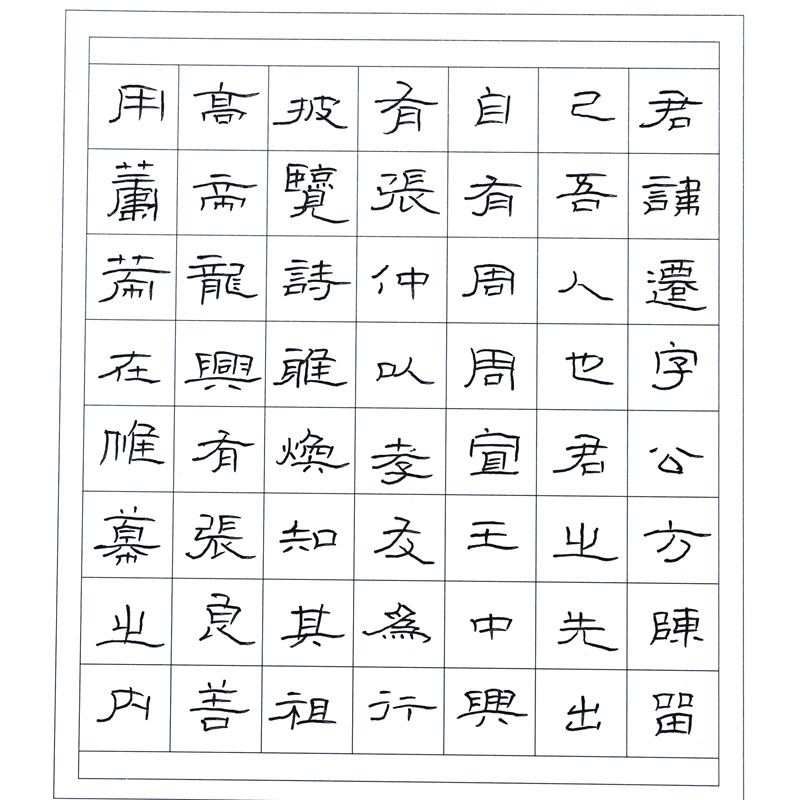 君諱遷字公方陳留
己吾人也君之先出
自有周周宣王中興
有張仲以孝友爲行
披覽詩雅煥知其祖
高帝龍興有張良善
用籌策在帷幕之内